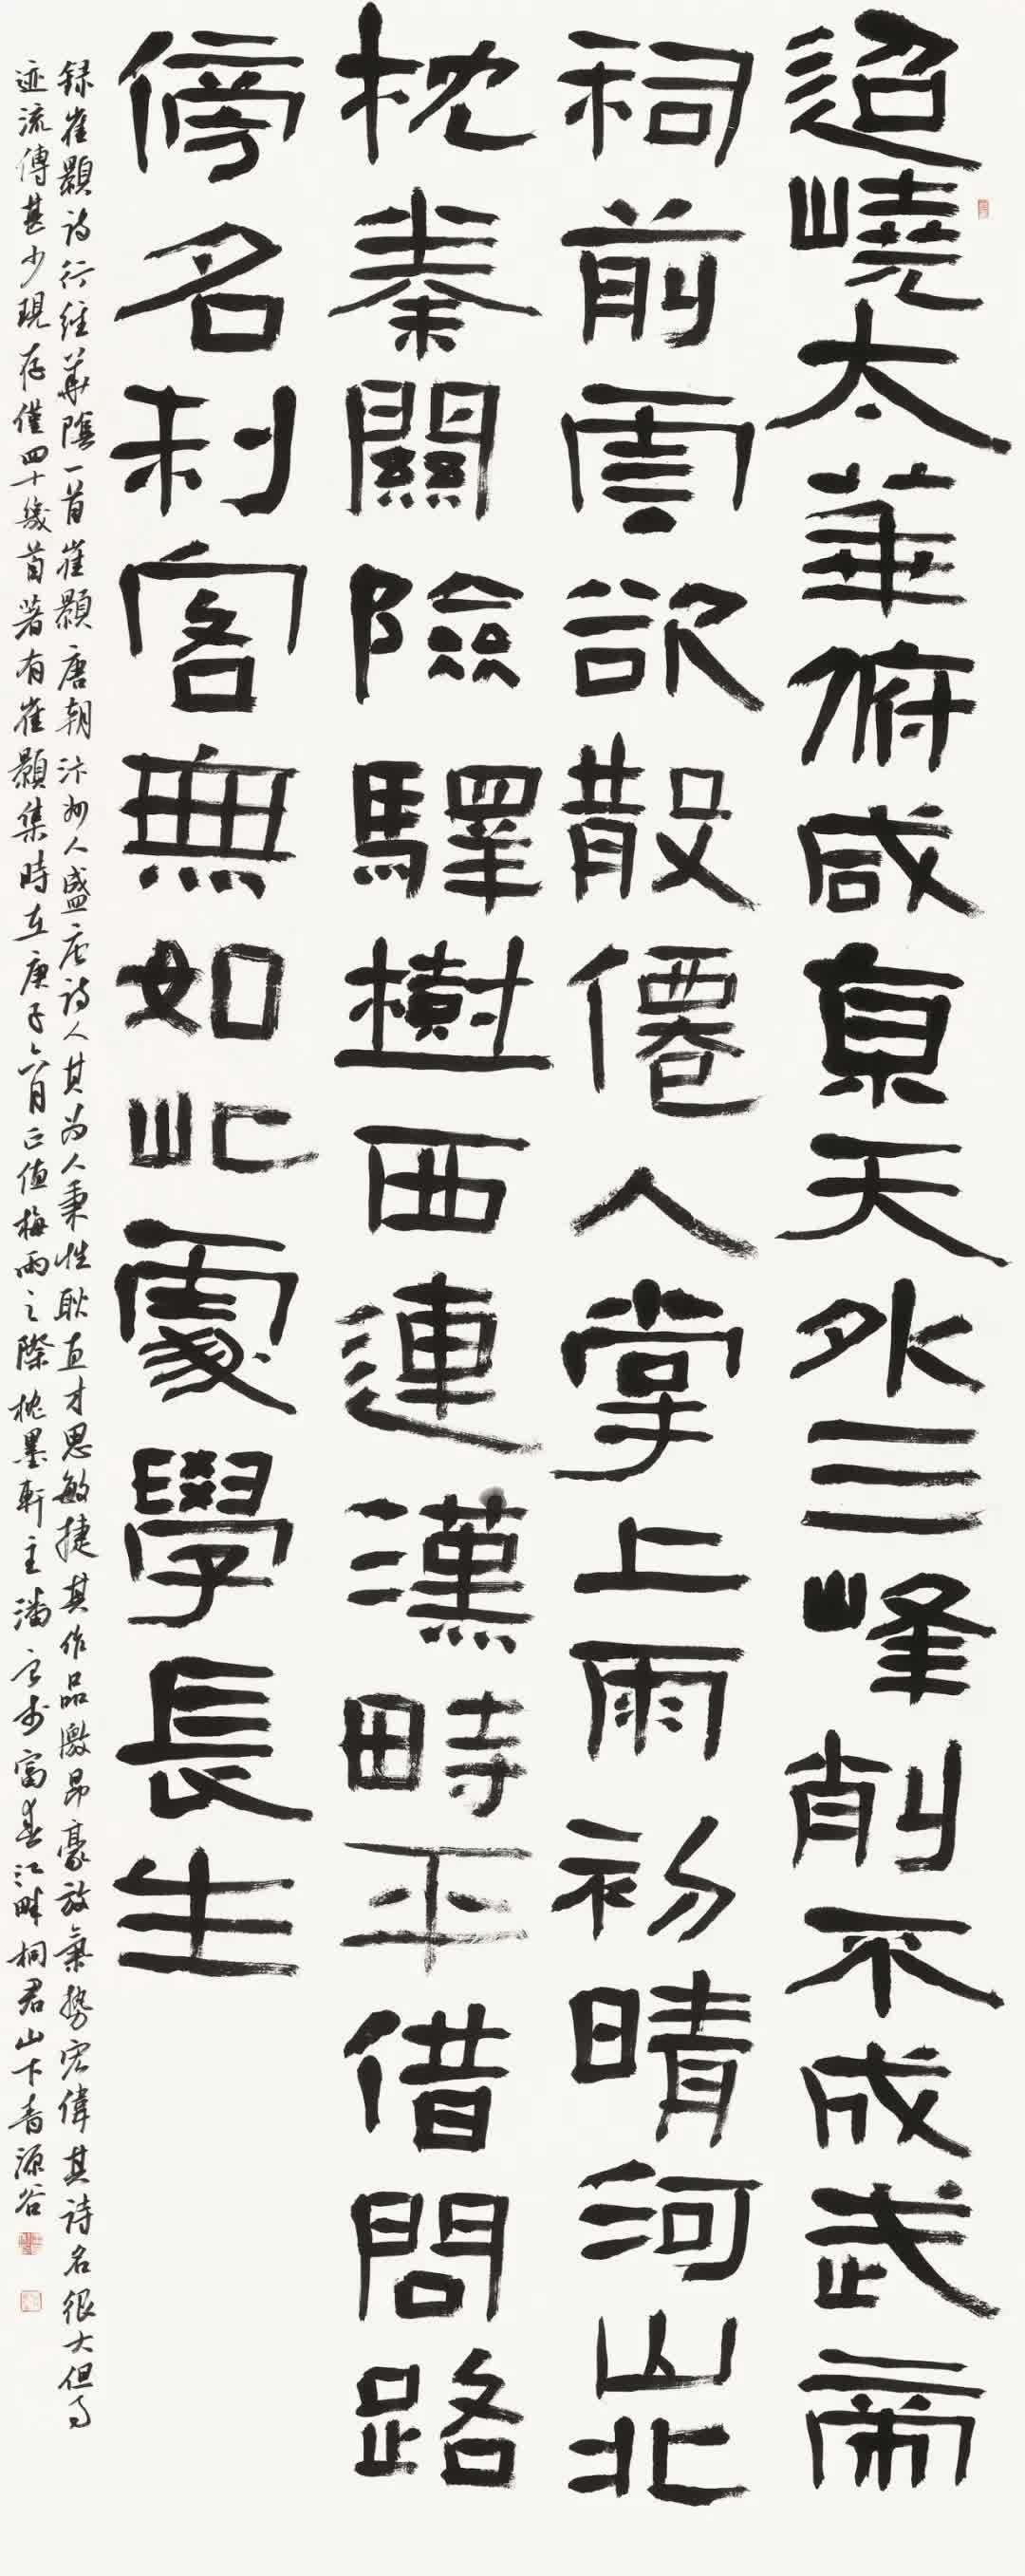 迢嶢太華俯咸京天外三峰削不成武帝
祠前雲欲散僊人掌上雨初晴河山北
枕秦關險驛樹西連漢畤平借問路
傍名利客無如此處學長生
録崔顥詩行經華陰一首崔顥唐朝汴州人盛唐詩人其為人秉性耿直才思敏捷其作品激昂豪放氣勢宏偉其詩名很大但事
迹流傳甚少現存僅四十幾首著有崔顥集時在庚子六月正值梅雨之際枕墨軒主潘 於富春江畔桐君山下春源谷